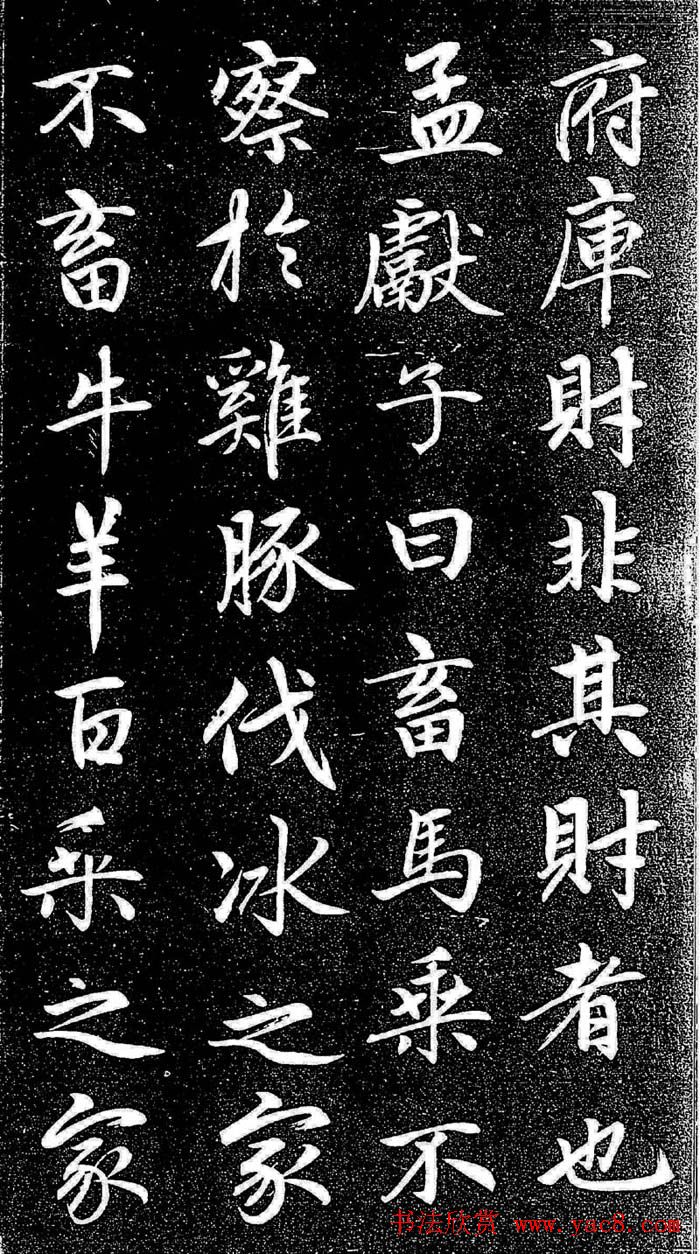 府庫財非其財者也
孟獻子曰畜馬乘不
察於雞豚伐冰之家
不畜牛羊百乘之家
书法欣赏 www.yac8.com